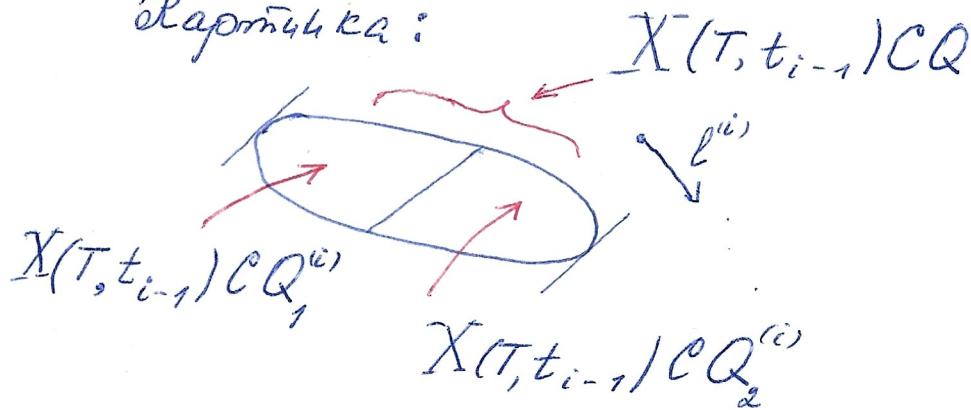 Картинка:
X(T, t_{i-1})CQ
l^{(i)}
X(T, t_{i-1})CQ_1^{(i)}
X(T, t_{i-1})CQ_2^{(i)}